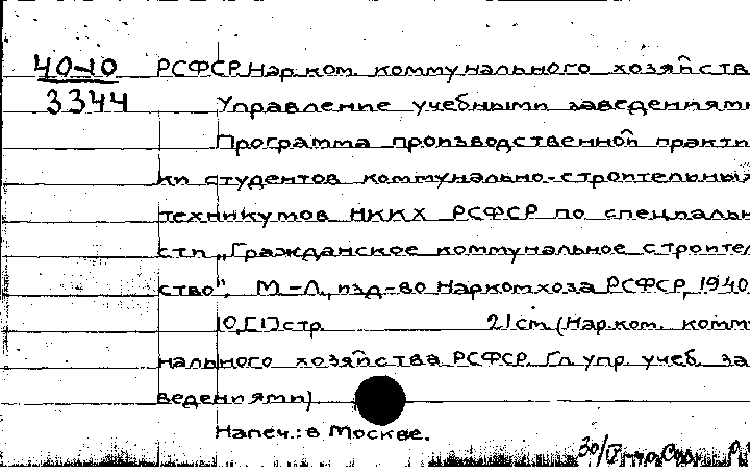 40-10
3344
РСФСР. Нар. ком. коммунального хозяйства
Управление учебными заведениями
Программа производственной практи
ки студентов коммунально-строительных
техникумов НККХ РСФСР по специальн
сти „Гражданское коммунальное строител
ство". М-Л., изд-во Наркомхоза РСФСР, 1940
10, [1] стр. 21 cm (Нар. ком. комму
нального хозяйства РСФСР. Гл упр. учеб. за
ведениями)
Напеч.: в Москве.